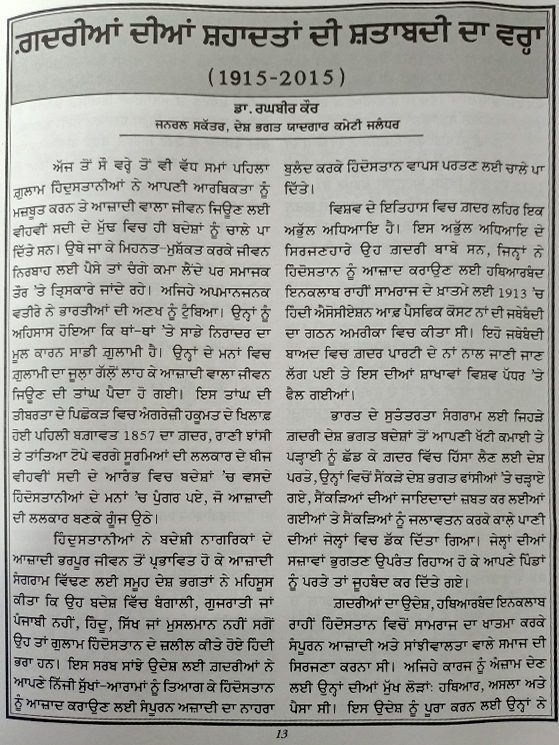 ਗ਼ਦਰੀਆਂ ਦੀਆਂ ਸ਼ਹਾਦਤਾਂ ਦੀ ਸ਼ਤਾਬਦੀ ਦਾ ਵਰ੍ਹਾ
(1915-2015)
ਡਾ. ਰਘਬੀਰ ਕੌਰ
ਜਨਰਲ ਸਕੱਤਰ, ਦੇਸ਼ ਭਗਤ ਯਾਦਗਾਰ ਕਮੇਟੀ ਜਲੰਧਰ
ਅੱਜ ਤੋਂ ਸੌ ਵਰ੍ਹੇ ਤੋਂ ਵੀ ਵੱਧ ਸਮਾਂ ਪਹਿਲਾ
ਗੁਲਾਮ ਹਿੰਦੁਸਤਾਨੀਆਂ ਨੇ ਆਪਣੀ ਆਰਥਿਕਤਾ ਨੂੰ
ਮਜ਼ਬੂਤ ਕਰਨ ਤੇ ਆਜ਼ਾਦੀ ਵਾਲਾ ਜੀਵਨ ਜਿਊਣ ਲਈ
ਵੀਹਵੀਂ ਸਦੀ ਦੇ ਮੁੱਢ ਵਿਚ ਹੀ ਬਦੇਸ਼ਾਂ ਨੂੰ ਚਾਲੇ ਪਾ
ਦਿੱਤੇ ਸਨ। ਉਥੇ ਜਾ ਕੇ ਮਿਹਨਤ-ਮੁਸ਼ੱਕਤ ਕਰਕੇ ਜੀਵਨ
ਨਿਰਬਾਹ ਲਈ ਪੈਸੇ ਤਾਂ ਚੰਗੇ ਕਮਾ ਲੈਂਦੇ ਪਰ ਸਮਾਜਕ
ਤੌਰ 'ਤੇ ਤ੍ਰਿਸਕਾਰੇ ਜਾਂਦੇ ਰਹੇ। ਅਜਿਹੇ ਅਪਮਾਨਜਨਕ
ਵਤੀਰੇ ਨੇ ਭਾਰਤੀਆਂ ਦੀ ਅਣਖ ਨੂੰ ਟੁੰਬਿਆ। ਉਨ੍ਹਾਂ ਨੂੰ
ਅਹਿਸਾਸ ਹੋਇਆ ਕਿ ਥਾਂ-ਥਾਂ 'ਤੇ ਸਾਡੇ ਨਿਰਾਦਰ ਦਾ
ਮੂਲ ਕਾਰਨ ਸਾਡੀ ਗ਼ੁਲਾਮੀ ਹੈ। ਉਨ੍ਹਾਂ ਦੇ ਮਨਾਂ ਵਿਚ
ਗ਼ੁਲਾਮੀ ਦਾ ਜੂਲਾ ਗੱਲੋਂ ਲਾਹ ਕੇ ਆਜ਼ਾਦੀ ਵਾਲਾ ਜੀਵਨ
ਜਿਊਣ ਦੀ ਤਾਂਘ ਪੈਦਾ ਹੋ ਗਈ। ਇਸ ਤਾਂਘ ਦੀ
ਤੀਬਰਤਾ ਦੇ ਪਿਛੋਕੜ ਵਿਚ ਅੰਗਰੇਜ਼ੀ ਹਕੂਮਤ ਦੇ ਖਿਲਾਫ਼
ਹੋਈ ਪਹਿਲੀ ਬਗ਼ਾਵਤ 1857 ਦਾ ਗ਼ਦਰ, ਰਾਣੀ ਝਾਂਸੀ
ਤੇ ਤਾਂਤਿਆ ਟੋਪੇ ਵਰਗੇ ਸੂਰਮਿਆਂ ਦੀ ਲਲਕਾਰ ਦੇ ਬੀਜ
ਵੀਹਵੀਂ ਸਦੀ ਦੇ ਆਰੰਭ ਵਿਚ ਬਦੇਸ਼ਾਂ 'ਚ ਵਸਦੇ
ਹਿੰਦੋਸਤਾਨੀਆਂ ਦੇ ਮਨਾਂ 'ਚ ਪੁੰਗਰ ਪਏ, ਜੋ ਆਜ਼ਾਦੀ
ਦੀ ਲਲਕਾਰ ਬਣਕੇ ਗੂੰਜ ਉਠੇ।
ਹਿੰਦੁਸਤਾਨੀਆਂ ਨੇ ਬਦੇਸ਼ੀ ਨਾਗਰਿਕਾਂ ਦੇ
ਆਜ਼ਾਦੀ ਭਰਪੂਰ ਜੀਵਨ ਤੋਂ ਪ੍ਰਭਾਵਿਤ ਹੋ ਕੇ ਆਜ਼ਾਦੀ
ਸੰਗਰਾਮ ਵਿੱਢਣ ਲਈ ਸਮੂਹ ਦੇਸ਼ ਭਗਤਾਂ ਨੇ ਮਹਿਸੂਸ
ਕੀਤਾ ਕਿ ਉਹ ਬਦੇਸ਼ ਵਿੱਚ ਬੰਗਾਲੀ, ਗੁਜਰਾਤੀ ਜਾਂ
ਪੰਜਾਬੀ ਨਹੀਂ, ਹਿਦੂ, ਸਿੱਖ ਜਾਂ ਮੁਸਲਮਾਨ ਨਹੀਂ ਸਗੋਂ
ਉਹ ਤਾਂ ਗੁਲਾਮ ਹਿੰਦੋਸਤਾਨ ਦੇ ਜ਼ਲੀਲ ਕੀਤੇ ਹੋਏ ਹਿੰਦੀ
ਭਰਾ ਹਨ। ਇਸ ਸਰਬ ਸਾਂਝੇ ਉਦੇਸ਼ ਲਈ ਗ਼ਦਰੀਆਂ ਨੇ
ਆਪਣੇ ਨਿੱਜੀ ਸੁੱਖਾਂ-ਆਰਾਮਾਂ ਨੂੰ ਤਿਆਗ ਕੇ ਹਿੰਦੋਸਤਾਨ
ਨੂੰ ਆਜ਼ਾਦ ਕਰਾਉਣ ਲਈ ਸੰਪੂਰਨ ਅਜ਼ਾਦੀ ਦਾ ਨਾਹਰਾ
ਬੁਲੰਦ ਕਰਕੇ ਹਿਦੋਸਤਾਨ ਵਾਪਸ ਪਰਤਣ ਲਈ ਚਾਲੇ ਪਾ
ਦਿੱਤੇ।
ਵਿਸ਼ਵ ਦੇ ਇਤਿਹਾਸ ਵਿਚ ਗ਼ਦਰ ਲਹਿਰ ਇਕ
ਅਭੁੱਲ ਅਧਿਆਇ ਹੈ। ਇਸ ਅਭੁੱਲ ਅਧਿਆਇ ਦੇ
ਸਿਰਜਣਹਾਰੇ ਉਹ ਗ਼ਦਰੀ ਬਾਬੇ ਸਨ, ਜਿਨ੍ਹਾਂ ਨੇ
ਹਿੰਦੋਸਤਾਨ ਨੂੰ ਆਜ਼ਾਦ ਕਰਾਉਣ ਲਈ ਹਥਿਆਰਬੰਦ
ਇਨਕਲਾਬ ਰਾਹੀਂ ਸਾਮਰਾਜ ਦੇ ਖ਼ਾਤਮੇ ਲਈ 1913 'ਚ
ਹਿੰਦੀ ਐਸੋਸੀਏਸ਼ਨ ਆਫ਼ ਪੈਸਫਿਕ ਕੋਸਟ ਨਾਂ ਦੀ ਜਥੇਬੰਦੀ
ਦਾ ਗਠਨ ਅਮਰੀਕਾ ਵਿਚ ਕੀਤਾ ਸੀ। ਇਹੋ ਜਥੇਬੰਦੀ
ਬਾਅਦ ਵਿਚ ਗ਼ਦਰ ਪਾਰਟੀ ਦੇ ਨਾਂ ਨਾਲ ਜਾਣੀ ਜਾਣ
ਲੱਗ ਪਈ ਤੇ ਇਸ ਦੀਆਂ ਸ਼ਾਖਾਵਾਂ ਵਿਸ਼ਵ ਪੱਧਰ 'ਤੇ
ਫੈਲ ਗਈਆਂ।
ਭਾਰਤ ਦੇ ਸੁਤੰਤਰਤਾ ਸੰਗਰਾਮ ਲਈ ਜਿਹੜੇ
ਗ਼ਦਰੀ ਦੇਸ਼ ਭਗਤ ਬਦੇਸ਼ਾਂ ਤੋਂ ਆਪਣੀ ਖੱਟੀ ਕਮਾਈ ਤੇ
ਪੜ੍ਹਾਈ ਨੂੰ ਛੱਡ ਕੇ ਗ਼ਦਰ ਵਿੱਚ ਹਿੱਸਾ ਲੈਣ ਲਈ ਦੇਸ਼
ਪਰਤੇ, ਉਨ੍ਹਾਂ ਵਿਚੋਂ ਸੈਂਕੜੇ ਦੇਸ਼ ਭਗਤ ਫਾਂਸੀਆਂ 'ਤੇ ਚੜ੍ਹਾਏ
ਗਏ, ਸੈਂਕੜਿਆਂ ਦੀਆਂ ਜਾਇਦਾਦਾਂ ਜ਼ਬਤ ਕਰ ਲਈਆਂ
ਗਈਆਂ ਤੇ ਸੈਂਕੜਿਆਂ ਨੂੰ ਜਲਾਵਤਨ ਕਰਕੇ ਕਾਲੇ ਪਾਣੀ
ਦੀਆਂ ਜੇਲ੍ਹਾਂ ਵਿਚ ਡੱਕ ਦਿੱਤਾ ਗਿਆ। ਜੇਲ੍ਹਾਂ ਦੀਆਂ
ਸਜ਼ਾਵਾਂ ਭੁਗਤਣ ਉਪਰੰਤ ਰਿਹਾਅ ਹੋ ਕੇ ਆਪਣੇ ਪਿੰਡਾਂ
ਨੂੰ ਪਰਤੇ ਤਾਂ ਜੂਹਬੰਦ ਕਰ ਦਿੱਤੇ ਗਏ।
ਗ਼ਦਰੀਆਂ ਦਾ ਉਦੇਸ਼, ਹਥਿਆਰਬੰਦ ਇਨਕਲਾਬ
ਰਾਹੀਂ ਹਿੰਦੋਸਤਾਨ ਵਿਚੋਂ ਸਾਮਰਾਜ ਦਾ ਖਾਤਮਾ ਕਰਕੇ
ਸੰਪੂਰਨ ਆਜ਼ਾਦੀ ਅਤੇ ਸਾਂਝੀਵਾਲਤਾ ਵਾਲੇ ਸਮਾਜ ਦੀ
ਸਿਰਜਣਾ ਕਰਨਾ ਸੀ। ਅਜਿਹੇ ਕਾਰਜ ਨੂੰ ਅੰਜ਼ਾਮ ਦੇਣ
ਲਈ ਉਨ੍ਹਾਂ ਦੀਆਂ ਮੁੱਖ ਲੋੜਾਂ: ਹਥਿਆਰ, ਅਸਲਾ ਅਤੇ
ਪੈਸਾ ਸੀ। ਇਸ ਉਦੇਸ਼ ਨੂੰ ਪੂਰਾ ਕਰਨ ਲਈ ਉਨ੍ਹਾਂ ਨੇ
13